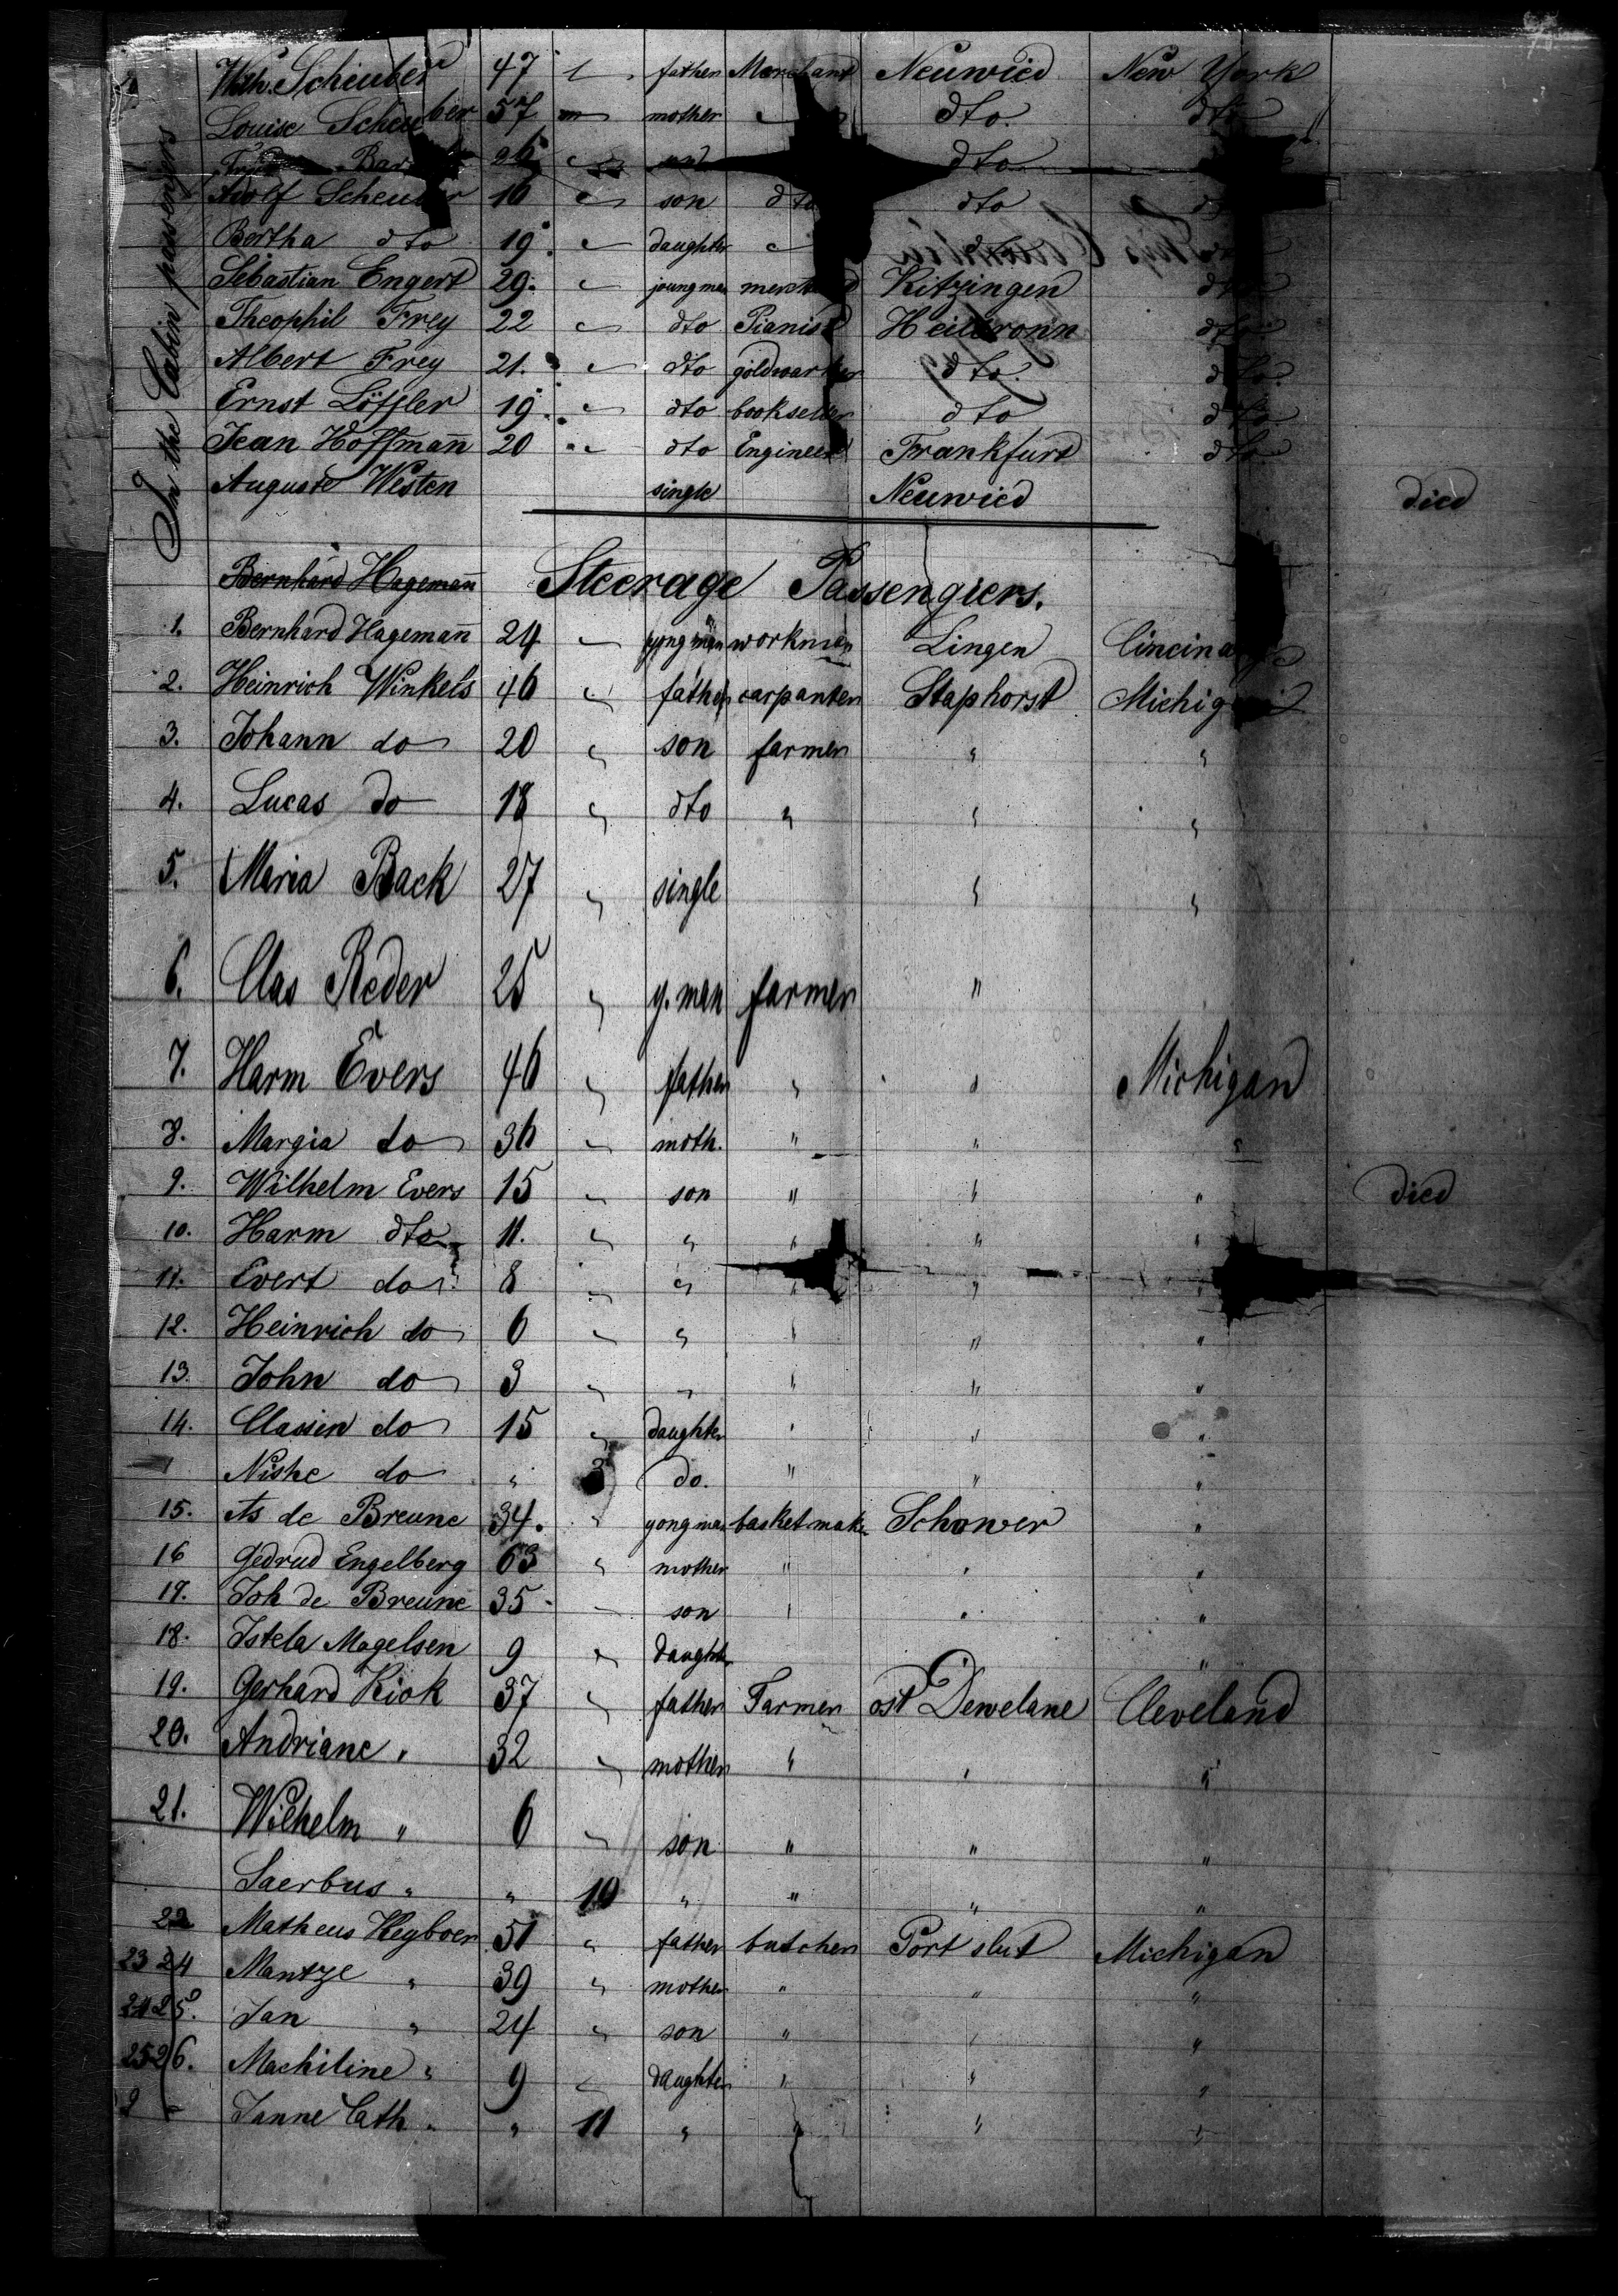 In the Cabin passengers
Wilh. Scheuber 47 father Merchant Neuwied New York
Louise Scheuber 57 mother dto. dto
26 dto
Adolf Scheuber 16 son dto dto
Bertha dto 19 daughter dto
Sebastian Engert 29. joung man Kitzingen dto
Theophil Frey 22 dto Pianist Heilbronn dto.
Albert Frey 21. dto goldwarker dto. dto.
Ernst Löffler 19. dto bookseller dto dto
Jean Hoffmañ 20 dto Engineer Frankfurd dto
Auguste Westen single Neuwied died
Steerage Passengiers.
Bernhard Hagemañ
1. Bernhard Hagemañ 24 yong man workman Lingen
2. Heinrich Winkels 46 father carpanter Staphorst Michigan
3. Johann do 20 " son farmer " "
4. Lucas do 18 " dto " " "
5. Maria Back 27 " single " "
6. Clas Reder 25 " y. man farmer "
7. Harm Evers 46 " father " " Michigan
8. Margia do 36 " moth. " " "
9. Wilhelm Evers 15 " son " " " died
10. Harm dto 11. " " " " "
11. Evert do 8 " " " " "
12. Heinrich do 6 " " " " "
13. John do 3 " " " " "
14. Classien do 15 " daughter " " "
Niske do " 3 do. " " "
15. As de Breune 34. " yong man basket maker Schower "
16 Gedrud Engelberg 63 " mother " " "
17. Joh de Breune 35 son " " "
18. Istela Magelsen 9 " daughter "
19. Gerhard Kiok 37 " father Farmer ost Dewelane Cleveland
20. Andriane " 32 " mother " " "
21. Wilhelm " 6 " son " " "
Saerbus " " 10 " " " "
22 Matheus Heyboer 51 " father butcher Port slut Michigan
23 24 Mantze " 39 " mother " " "
24 25. Jan " 24 " son " " "
25 26. Machiline " 9 " daughter " " "
Janne Cath " " 11 " " " "